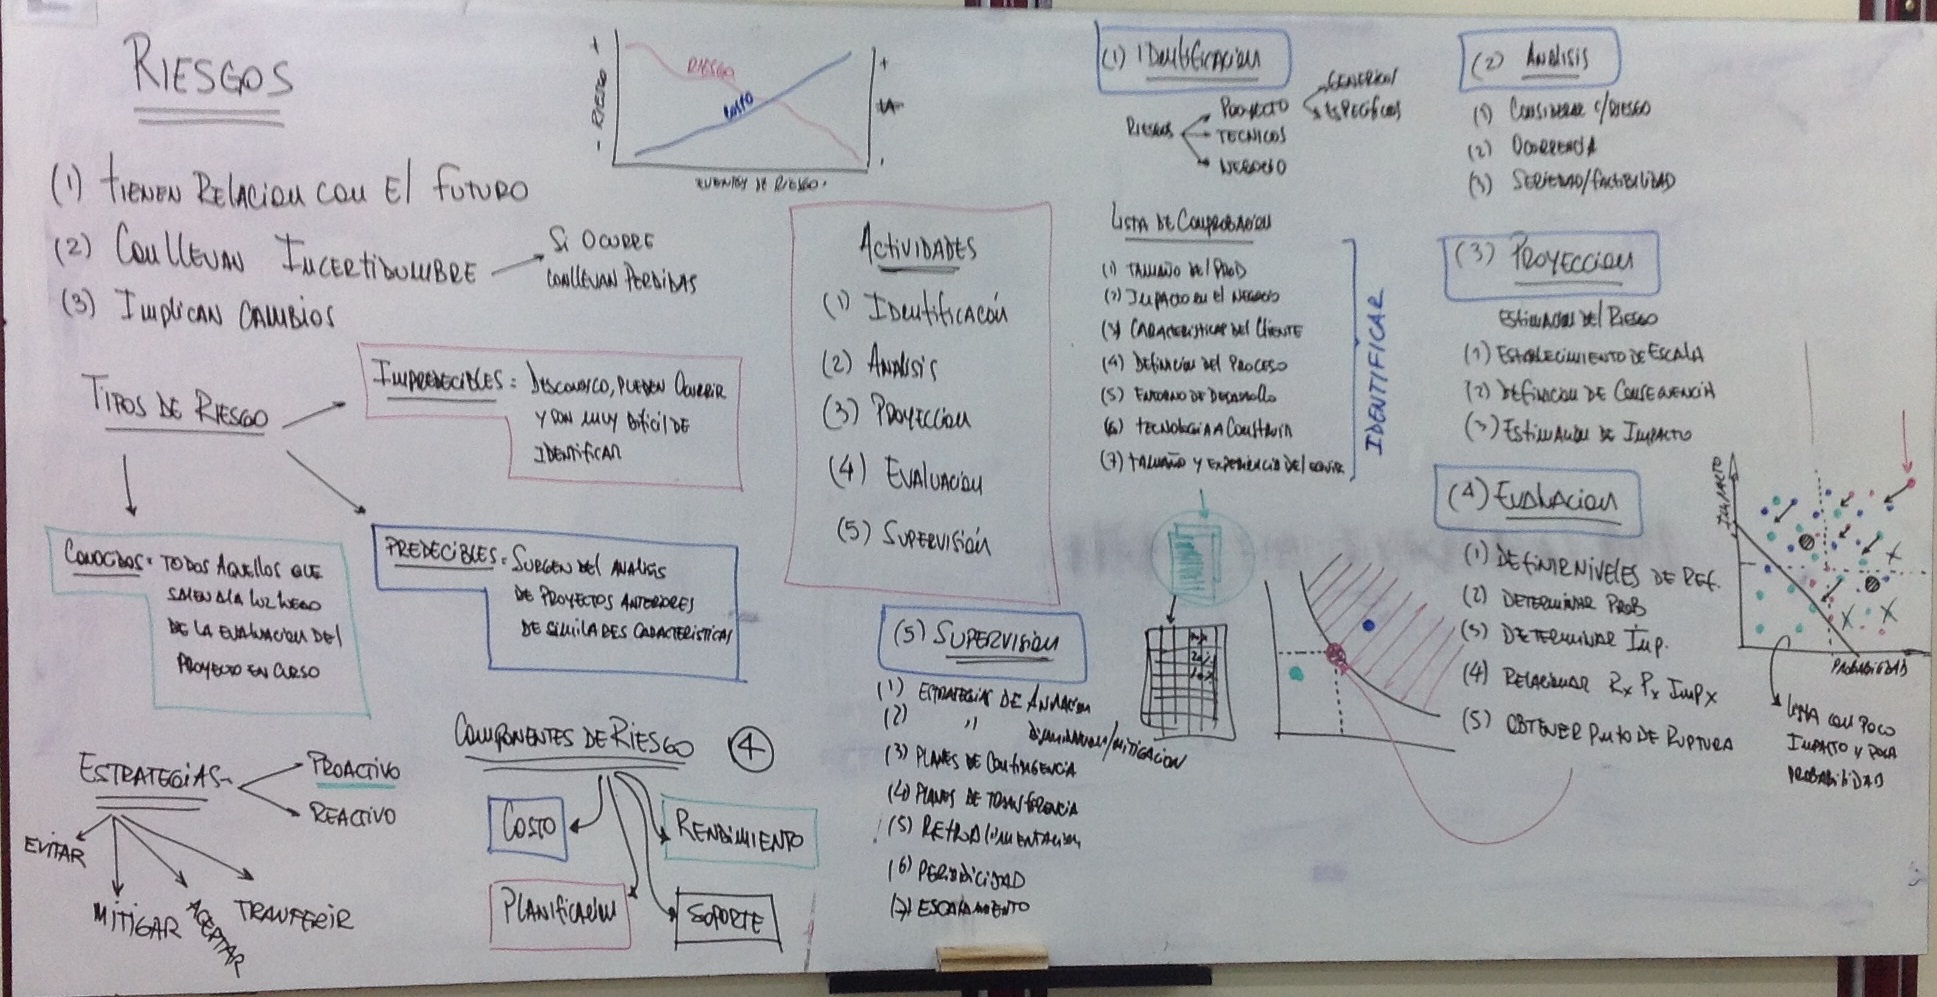 RIESGOS
(1) TIENEN RELACION CON EL FUTURO
(2) CONLLEVAN INCERTIDUMBRE
SI OCURRE
CONLLEVAN PERDIDAS
(3) IMPLICAN CAMBIOS
+
- RIESGO
RIESGO
COSTO
+
EVENTOS DE RIESGO
TIPOS DE RIESGO
IMPREDECIBLES = DESCONOZCO, PUEDEN OCURRIR
Y SON MUY DIFICIL DE
IDENTIFICAR
CONOCIDOS = TODOS AQUELLOS QUE
SALEN A LA LUZ LUEGO
DE LA EVALUACION DEL
PROYECTO EN CURSO
PREDECIBLES = SURGEN DEL ANALISIS
DE PROYECTOS ANTERIORES
DE SIMILARES CARACTERISTICAS
ESTRATEGIAS
PROACTIVO
REACTIVO
EVITAR
MITIGAR
ACEPTAR
TRANFERIR
COMPONENTES DE RIESGO 4
COSTO
RENDIMIENTO
PLANIFICACION
SOPORTE
ACTIVIDADES
(1) IDENTIFICACIÓN
(2) ANALISIS
(3) PROYECCION
(4) EVALUACION
(5) SUPERVISIÓN
(5) SUPERVISION
(1) ESTRATEGIAS DE ANULACION
(2) " DISMINUCION/MITIGACION
(3) PLANES DE CONTINGENCIA
(4) PLANES DE TRANSFERENCIA
(5) RETROALIMENTACION
(6) PERIODICIDAD
(7) ESCALAMIENTO
(1) IDENTIFICACION
RIESGOS
PROYECTO
GENERICOS
ESPECIFICOS
TECNICOS
NEGOCIO
LISTA DE COMPROBACION
(1) TAMAÑO DEL PROD
(2) IMPACTO EN EL NEGOCIO
(3) CARACTERISTICAS DEL CLIENTE
(4) DEFINICION DEL PROCESO
(5) ENTORNO DE DESARROLLO
(6) TECNOLOGIA A CONSTRUIR
(7) TAMAÑO Y EXPERIENCIA DEL EQUIP
IDENTIFICAR
(2) ANALISIS
(1) CONSIDERAR C/RIESGO
(2) OCURRENCIA
(3) SERIEDAD/FACTIBILIDAD
(3) PROYECCION
ESTIMACION DEL RIESGO
(1) ESTABLECIMIENTO DE ESCALA
(2) DEFINICION DE CONSECUENCIA
(3) ESTIMACION DE IMPACTO
(4) EVALUACION
(1) DEFINIR NIVELES DE REF.
(2) DETERMINAR PROB
(3) DETERMINAR IMP.
(4) RELACIONAR Rx Px IMPx
(5) OBTENER PUNTO DE RUPTURA
IMPACTO
PROBABILIDAD
CON POCO
IMPACTO Y POCA
PROBABILIDAD